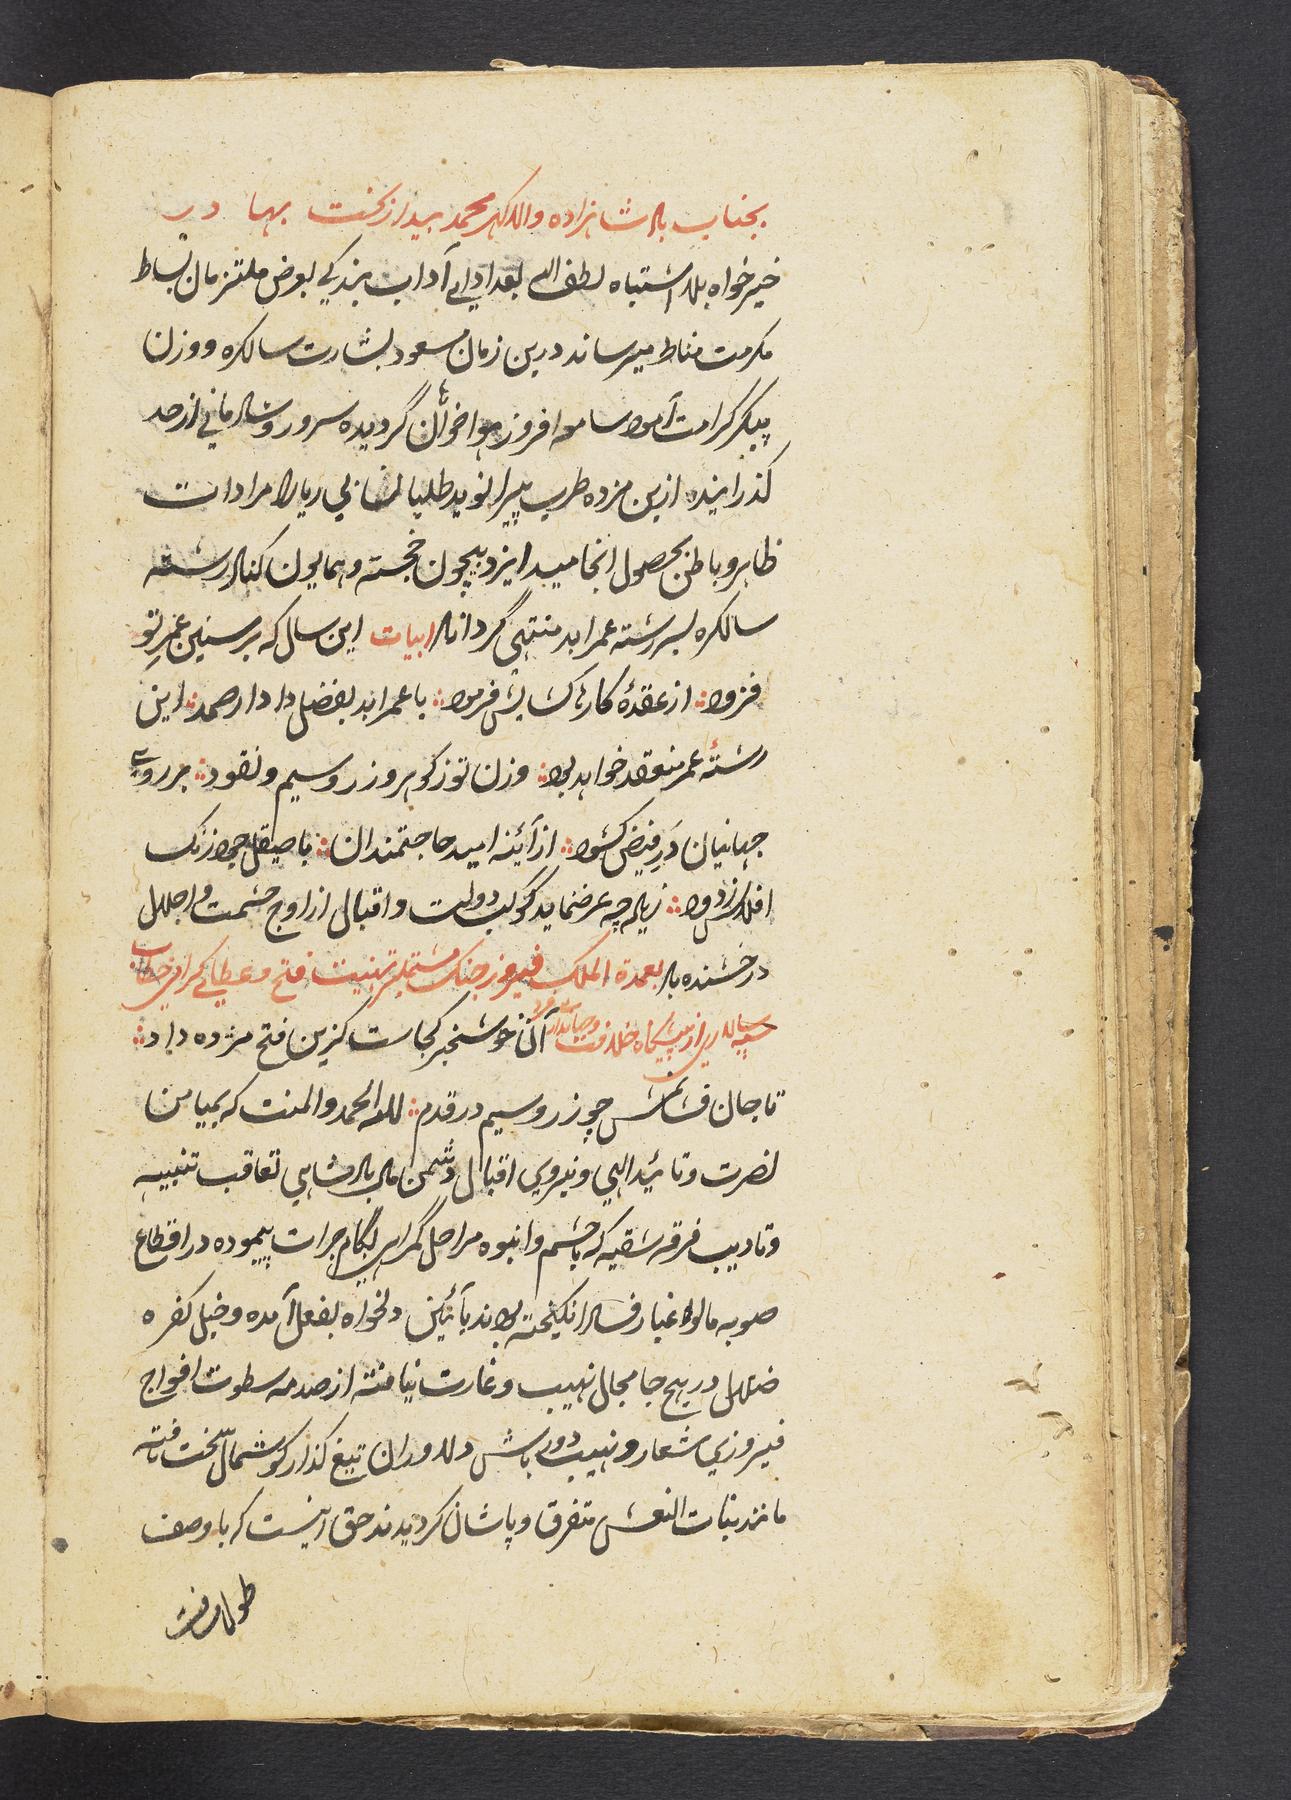 بجناب پادشاهزاده والاگهر محمد بیدار بخت بهادر
خیرخواه بلا اشتباه لطف الله بعد ادای آداب بندگی بعرض ملتزمان بساط
مکرمت مناط میرساند درین زمان مسعود بشارت سالگره و وزن
پیکر کرامت آمود سامعه افروز هواخواهان گردیده سرور و شادمانی از حد
گذرانیده ازین مژده طرب پیرا نوید طلبان بی ریا را مرادات
ظاهر و باطن بحصول انجامید ایزد بیچون خجسته و همایون کناد رشته
سالگره بسررشته عمر ابد منتهی گرداناد ابیات این سال که بر سنین عمر تو
فزود از عقدهٔ کارها کشایش فرمود با عمر ابد بفضل دادار صمد این
رشتهٔ عمر منعقد خواهد بود وزن تو ز گوهر و زر و سیم و نقود بر روی
جهانیان در فیض کشود از آئینه امید حاجتمندان با صیقل جود زنگ
افلاس زدود زیاده چه عرض نماید کوکب دولت و اقبال از اوج حشمت و اجلال
درخشنده باد بعمدة الملک فیروز جنگ مشتمل بر تهنیت فتح و عطای گرامی خطاب
سپه سالاری از پیشگاه خلافت و جهانداری فرد آن خوشخبر کجاست کزین فتح مژده داد
تا جان فشانمش چو زر و سیم در قدم لله الحمد والمنت که بمیامن
نصرت و تائید الهی و نیروی اقبال دشمن مال پادشاهی تعاقب تنبیه
و تادیب فرقه شقیه که با حشم و انبوه مراحل گمراهی بگام جرات پیموده در اقطاع
صوبه مالوه غبار فساد انگیخته بودند بآئین دلخواه بفعل آمده و خیل کفره
ضلال در هیچ جا مجال نهیب و غارت نیافته از صدمه سطوت افواج
فیروزی شعار و نهیب دورباش دلاوران تیغ گذار گوشمال سخت یافته
مانند بنات النعش متفرق و پاشان گردیدند حق اینست که با وصف
طول مسافت